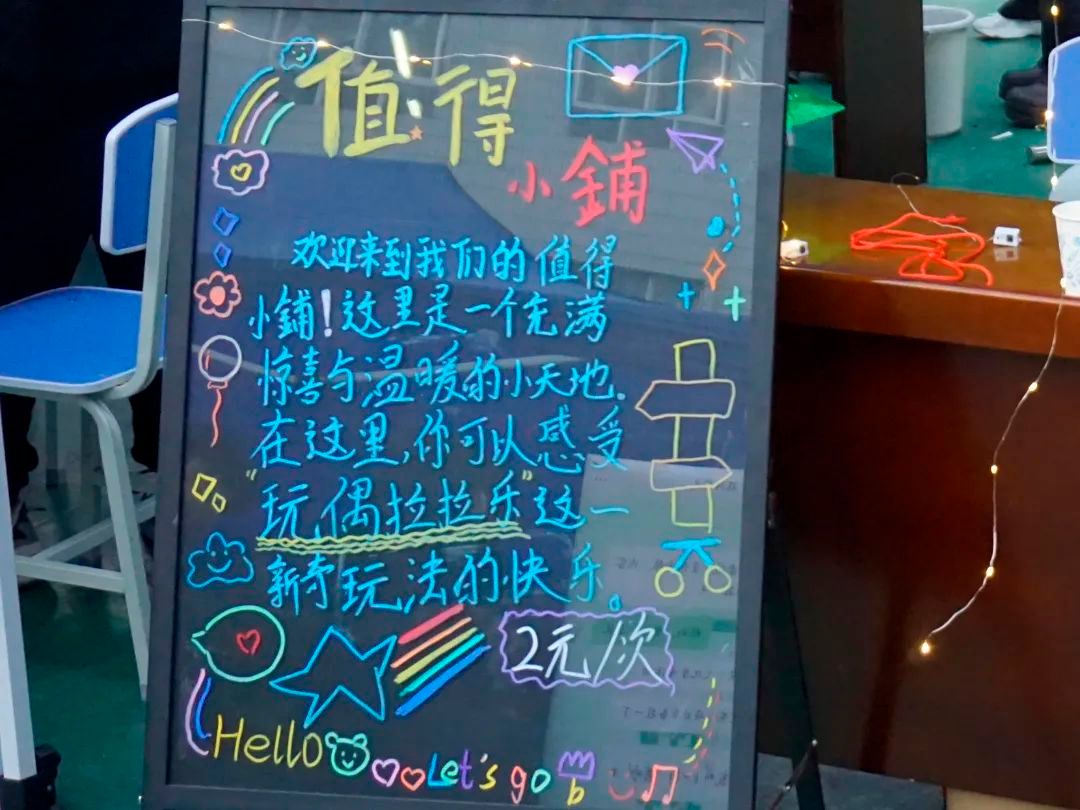 值得
小鋪
欢迎来到我们的值得
小鋪!这里是一个充满
惊喜与温暖的小天地.
在这里,你可以感受
"玩偶拉拉乐"这一
新奇玩法的快乐。
2元/次
Hello
Let's go